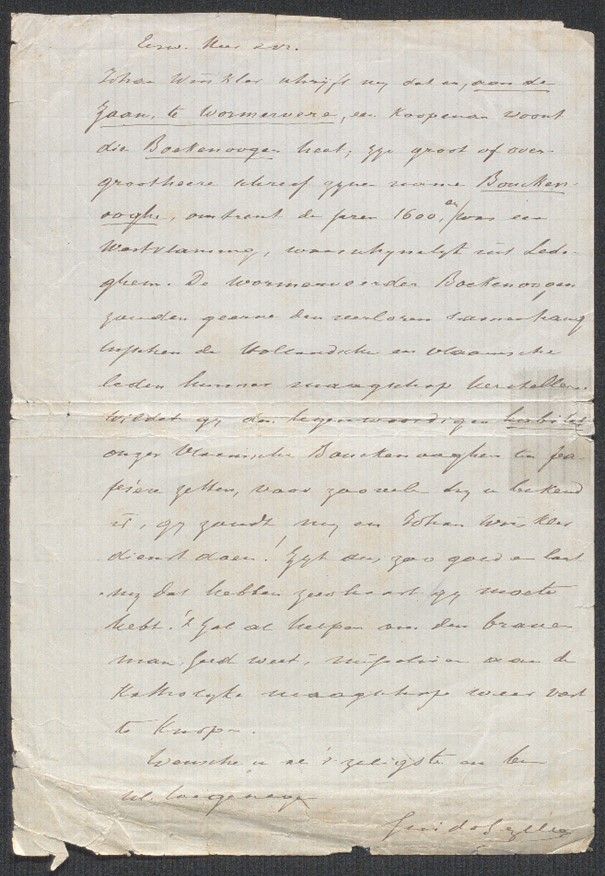 Eerw. Heer
Johan Winkler schrijft my dat er, aan de
Zaan, te Wormerveere, een Koopman woont
die Boekenoogen heet; zyn groot of over-
grootheere schreef zynen name Boucken-
ooghe, omtrent de jaren 1600, en was een
Westvlaming, waarschynelyk uit Lede-
ghem. De Wormerveerder Boekenoogen
zouden geerne den verloren samenhang
tusschen de Hollandsche en Vlaamsche
leden hunner maagschap herstellen.
Wildet gy den tegenwoordigen habitat
onzer Vlaamsche Bouckenooghen ten pa-
piere zetten, voor zoovele hy u bekend
is, gy zoudt my en Johan Winkler
dienst doen! Zyt dus zoo goed en laat
my dat hebben zoohaast gy moete
hebt. 't Zal al helpen om den braven
man, God weet, misschien aan de
Katholyke maagschap weer vast
te Knoopen.
Wensche u al 't zaligste en ben
Ul. toegenegen
Guido Gezelle